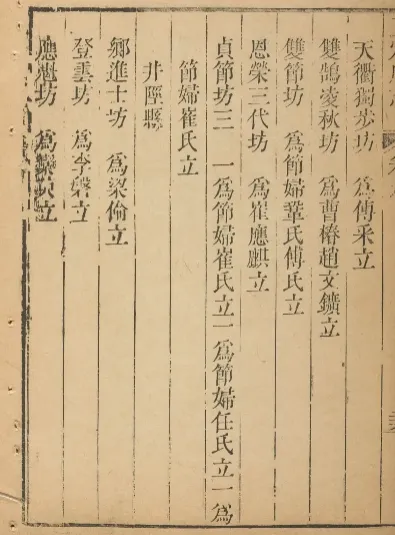 天衢獨步坊 爲傅釆立
雙鵠凌秋坊 爲曹椿趙文鑛立
雙節坊 爲節婦鞏氏傅氏立
恩榮三代坊 爲崔應麒立
貞節坊三 一爲節婦崔氏立一爲節婦任氏立一爲
節婦崔氏立
井陘縣
鄉進士坊 爲梁倫立
登雲坊 爲李磐立
應魁坊 爲立